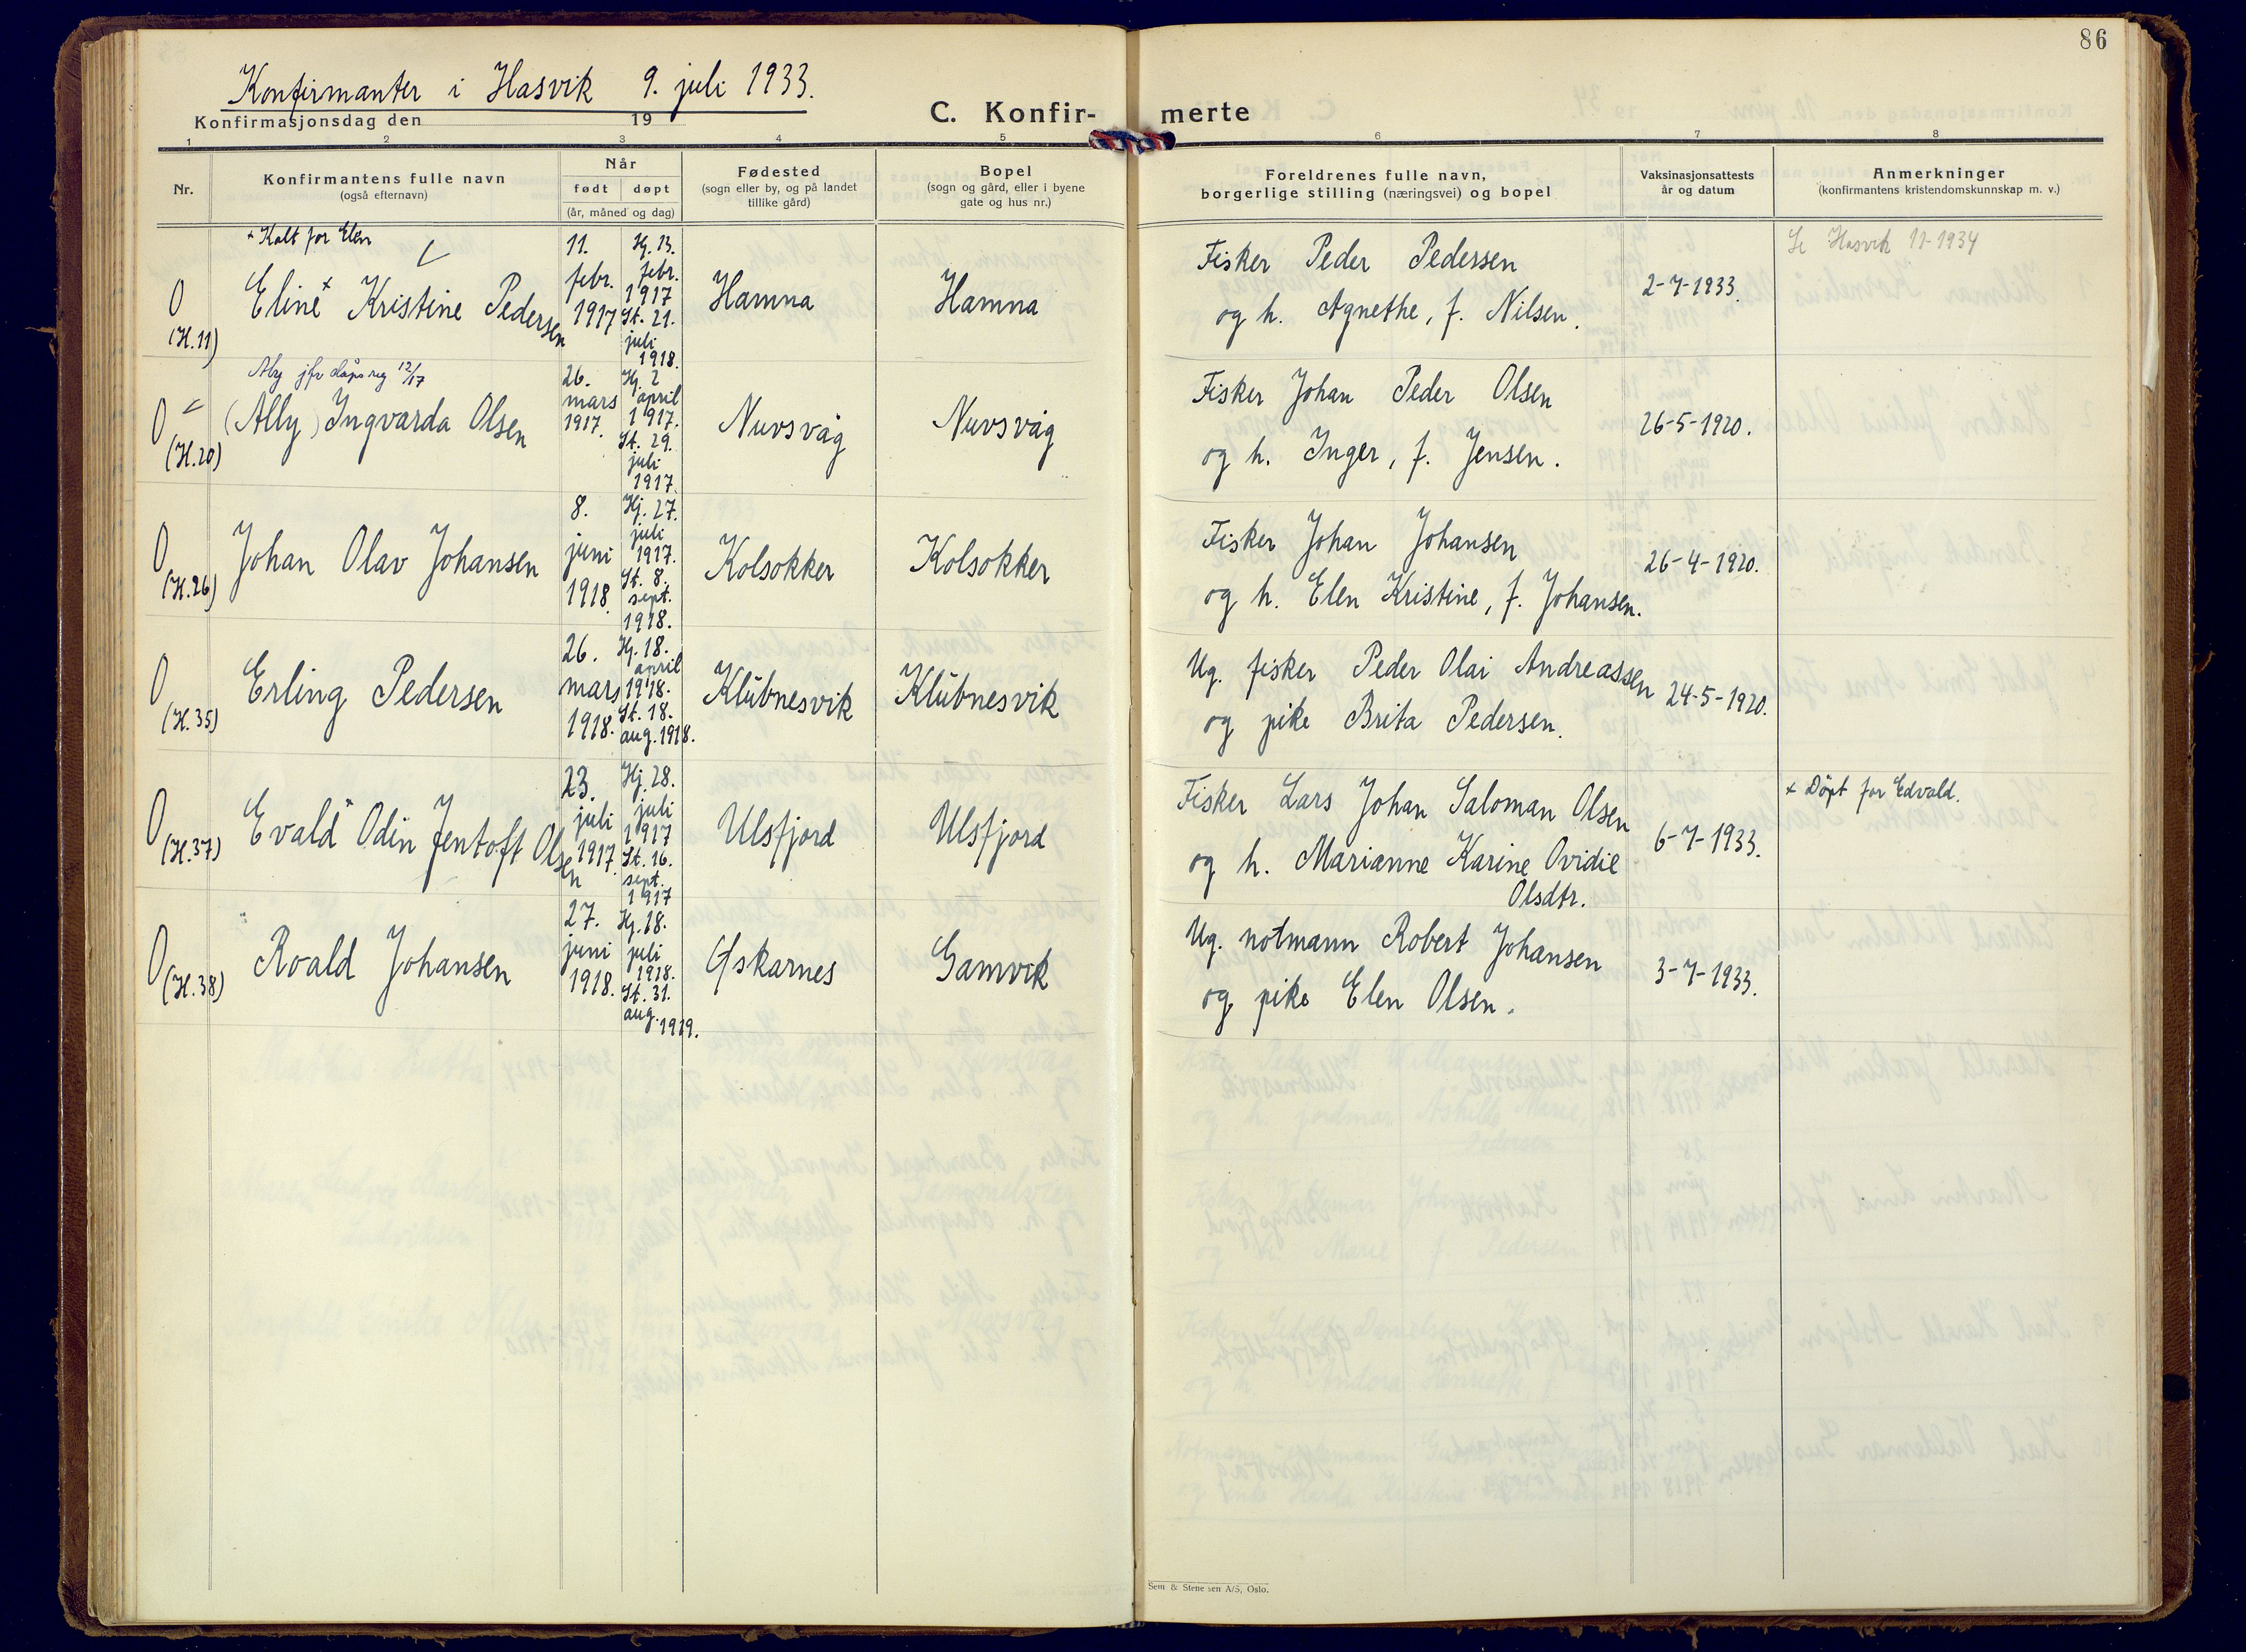 86
Konfirmanter i Hasvik 9. juli 1933.
Konfirmasjonsdag den 19
C. Konfir- merte
1 2 3 4 5 6 7 8
Nr.
Konfirmantens fulle navn
(også efternavn)
Når
født døpt
(år, måned og dag)
Fødested
(sogn eller by, og på landet
tillike gård)
Bopel
(sogn og gård, eller i byene
gate og hus nr.)
Foreldrenes fulle navn,
borgerlige stilling (næringsvei) og bopel
Vaksinasjonsattests
år og datum
Anmerkninger
(konfirmantens kristendomskunnskap m. v.)
+ Kalt for Elen
0
(H.11)
Eline + Kristine Pedersen
11.
febr.
1917
Hj. 13.
febr.
1917
St. 21.
juli
1918.
Hamna
Hamna
Fisker Peder Pedersen
og h. Agnethe, f. Nilsen.
2-7-1933.
Hasvik 11-1934
Aly jfr dåpsreg 12/17
0
(H.20)
(Ally) Ingvarda Olsen
26.
mars
1917.
Hj. 2
april
1917.
St. 29.
juli
1917.
Nuvsvåg
Nuvsvåg
Fisker Johan Peder Olsen
og h. Inger, f. Jensen.
26-5-1920.
0
(H.26)
Johan Olav Johansen
8.
juni
1918.
Hj. 27.
juli
1917.
St. 8.
sept.
1918.
Kolsokker
Kolsokker
Fisker Johan Johansen
og h. Elen Kristine, f. Johansen.
26-4-1920.
0
(H.35)
Erling Pedersen
26.
mars
1918.
Hj. 18.
april
1918.
St. 18.
aug. 1918.
Klubnesvik
Klubnesvik
Ug. fisker Peder Olai Andreassen
og pike Brita Pedersen.
24-5-1920.
0
(H.37)
Evald + Odin Jentoft Olsen
23.
juli
1917.
Hj. 28.
juli
1917
St. 16.
sept.
1917
Ulsfjord
Ulsfjord
Fisker Lars Johan Saloman Olsen
og h. Marianne Karine Ovidie
Olsdtr.
6-7-1933.
+ Döpt for Edvald.
0
(H.38)
Roald Johansen
27.
juni
1918.
Hj. 18.
juli
1918.
St. 31.
aug. 1919.
Øskarnes
Gamvik
Ug. notmann Robert Johansen
og pike Elen Olsen.
3-7-1933.
Sem & Stenersen A/S, Oslo.